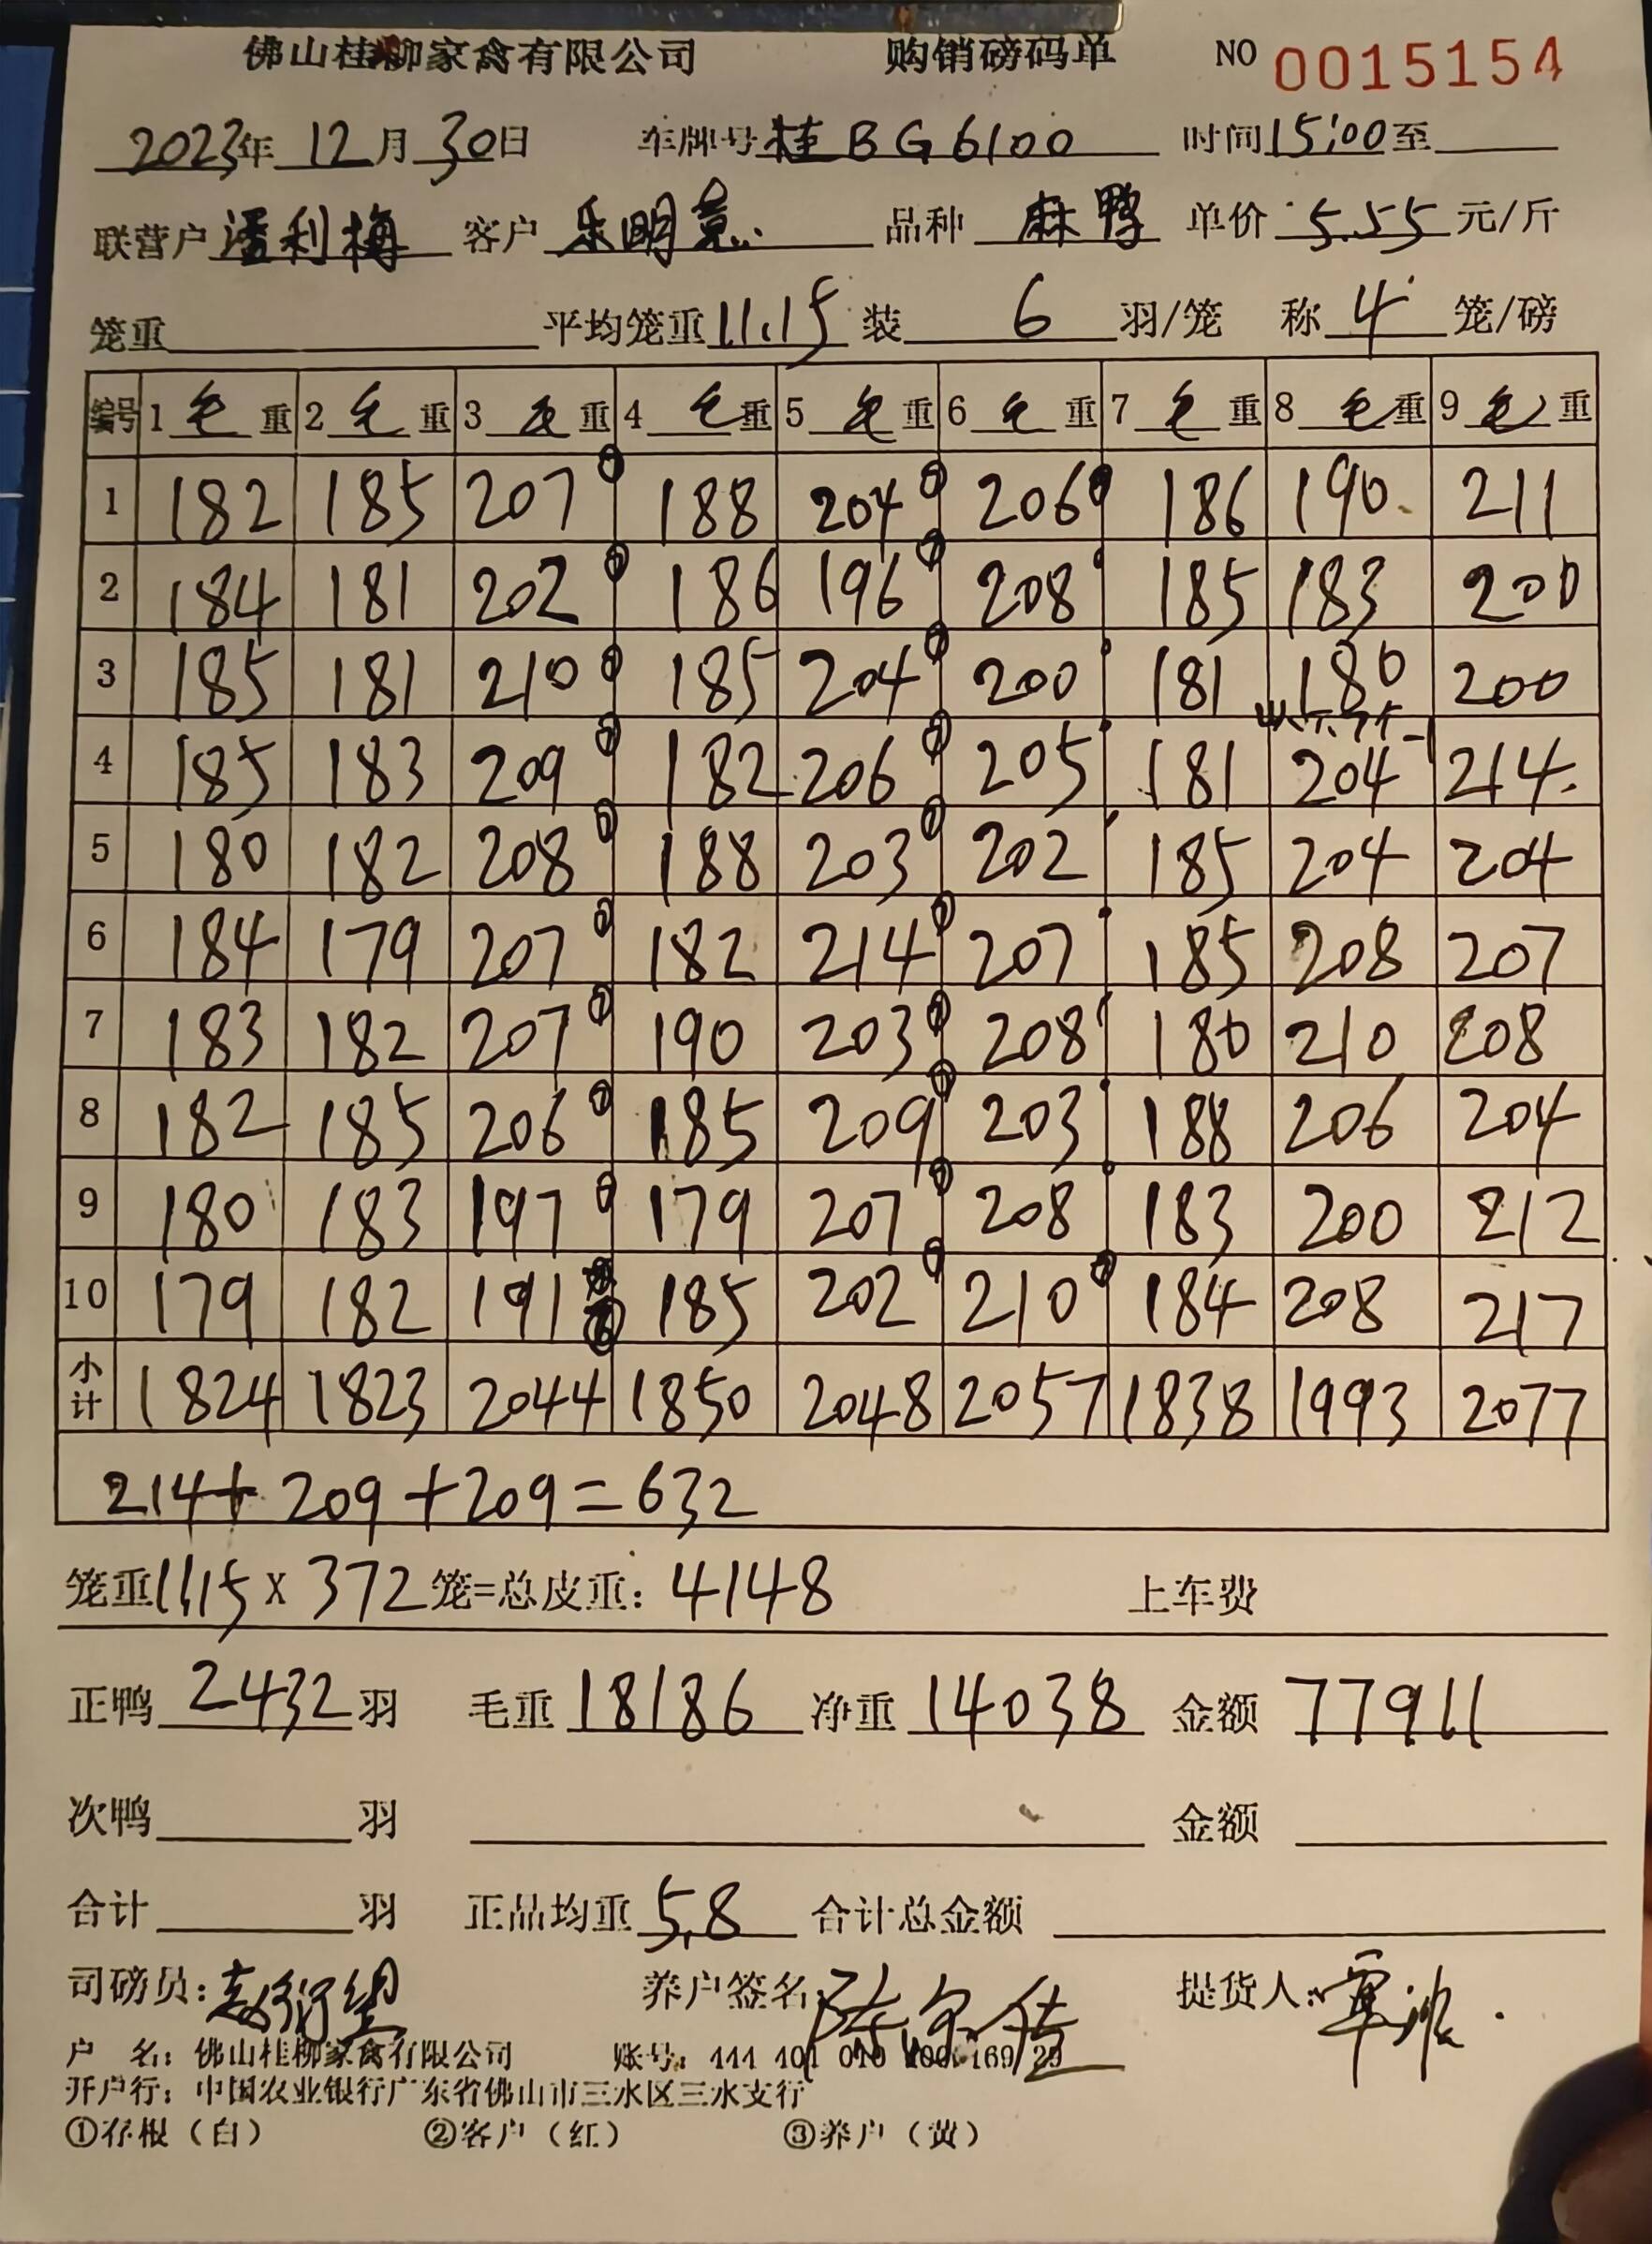 佛山桂柳家禽有限公司 购销磅码单 NO 0015154
2023年 12月 30日 车牌号 桂BG6100 时间 15:00至
联营户 潘利梅 客户 乐明意 品种 麻鸭 单价 5.55 元/斤
笼重 平均笼重 11.15 装 6 羽/笼 称 4 笼/磅
编号 1 毛 重 2 毛 重 3 毛 重 4 毛 重 5 毛 重 6 毛 重 7 毛 重 8 毛 重 9 毛 重
1 182 185 207 188 204 206 186 190 211
2 184 181 202 186 196 208 185 183 200
3 185 181 210 185 204 200 181 180 200
4 185 183 209 182 206 205 181 204 214
5 180 182 208 188 203 202 185 204 204
6 184 179 207 182 214 207 185 208 207
7 183 182 207 190 203 208 180 210 208
8 182 185 206 185 209 203 188 206 204
9 180 183 197 179 207 208 183 200 212
10 179 182 191 185 202 210 184 208 217
小计 1824 1823 2044 1850 2048 2057 1838 1993 2077
214+209+209=632
笼重 11.15 X 372 笼=总皮重: 4148 上车费
正鸭 2432 羽 毛重 18186 净重 14038 金额 77911
次鸭 羽 金额
合计 羽 正品均重 5.8 合计总金额
司磅员: 养户签名 提货人: 覃
户 名: 佛山桂柳家禽有限公司 账号:
开户行: 中国农业银行广东省佛山市三水区三水支行
①存根（白） ②客户（红） ③养户（黄）